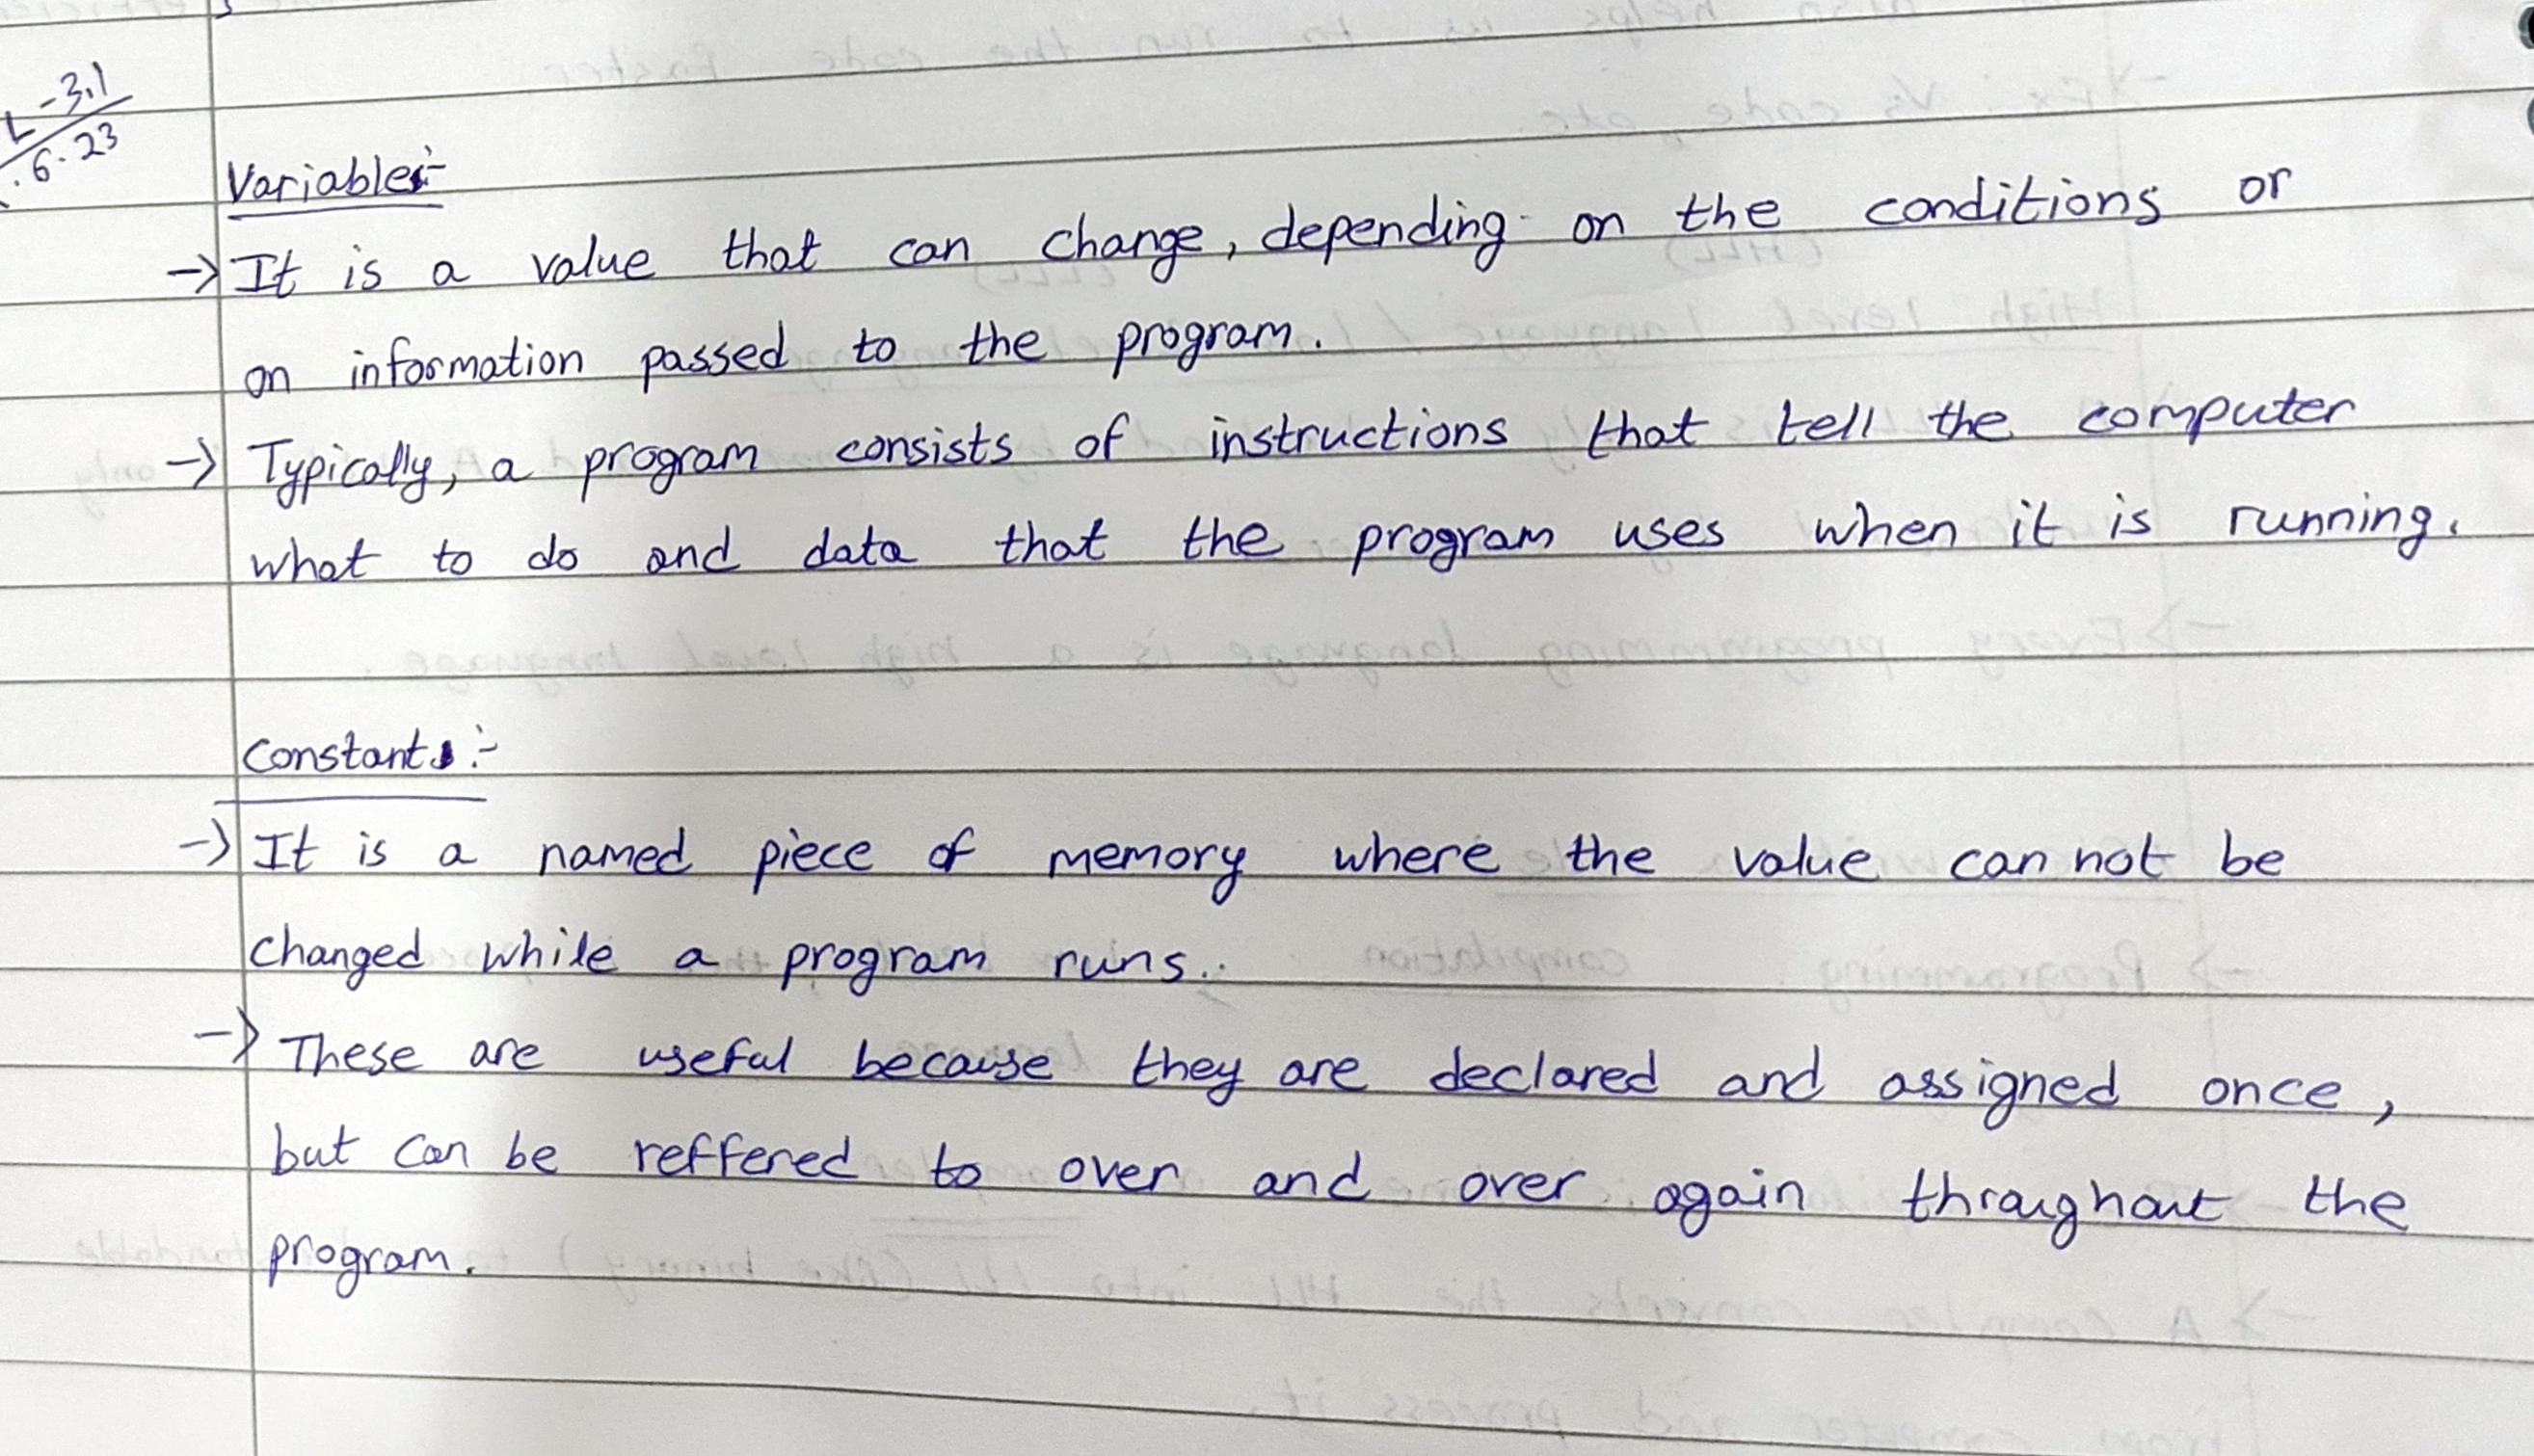 L-3.1
6.23
Variables:-
→ It is a value that can change, depending on the conditions or
on information passed to the program.
→ Typically, a program consists of instructions that tell the computer
what to do and data that the program uses when it is running.
Constants:-
→ It is a named piece of memory where the value can not be
changed while a program runs.
→ These are useful because they are declared and assigned once,
but can be reffered to over and over again throughout the
program.